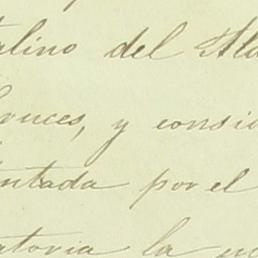 talino del Ala
bruces, y consid
entada por el
atoria la m